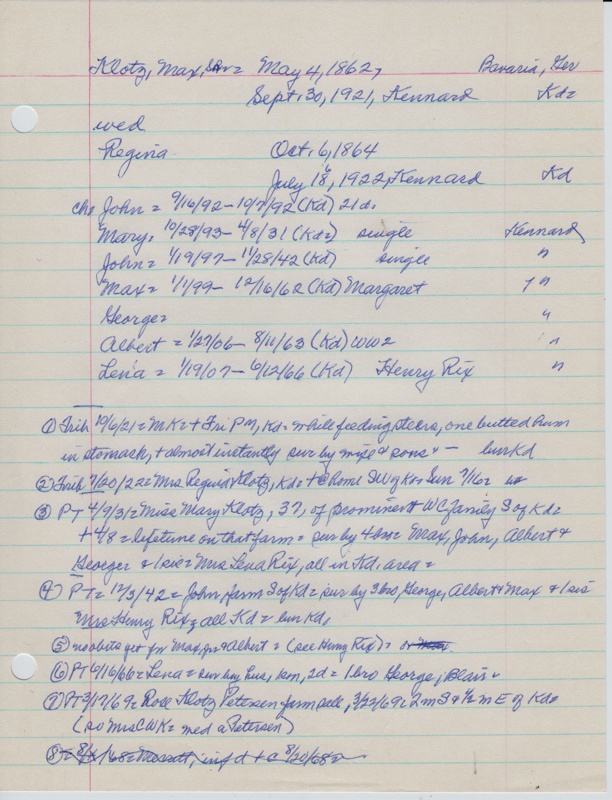 Klotz, Max, Sr = May 4, 1862, Bavaria, Ger
Sept. 30, 1921, Kennard Kd=
wed
Regina Oct. 6, 1864
July 16, 1922, Kennard Kd
ch= John = 9/16/92 - 10/7/92 (Kd) 21 d.
Mary, 10/28/93 - 4/8/31 (Kd=) single Kennard
John = 1/19/97 - 11/28/42 (Kd) single "
Max = 1/1/99 - 12/16/62 (Kd) Margaret "
George = "
Albert = 1/27/06 - 8/11/63 (Kd) WW2 "
Lena = 1/19/07 - 6/12/66 (Kd) Henry Rix "
① Trib 10/6/21 = MK = + Fri PM, Kd = while feeding steers, one butted him
in stomach, + almost instantly sur by wife & sons - bur Kd
② Trib 7/20/22 = Mrs Regina Klotz, Kd = + @ home SW of Kd = Sun 7/16 =
③ PT 4/9/31 = Miss Mary Klotz, 37, of prominent WC family S of Kd =
+ 4/8 = lifetime on that farm = sur by 4 bro = Max, John, Albert &
George & 1 sis = Mrs Lena Rix, all in Kd. area =
④ PT = 12/3/42 = John, farm S of Kd = sur by 3 bro, George, Albert & Max & 1 sis
Mrs Henry Rix, all Kd = bur Kd.
⑤ no obits yet for Max, Jr & Albert = (see Henry Rix) =
⑥ PT 6/16/66 = Lena = sur by hus, 1 son, 2 d = 1 bro George, Blair =
⑦ PT 3/17/69 = Rose Klotz Petersen farm sale, 3/22/69 = 2 m S & 1/2 m E of Kd =
(so Mrs CWK = wed a Petersen)
8 = 8/ /68 = inf d + @ 8/20/68 =